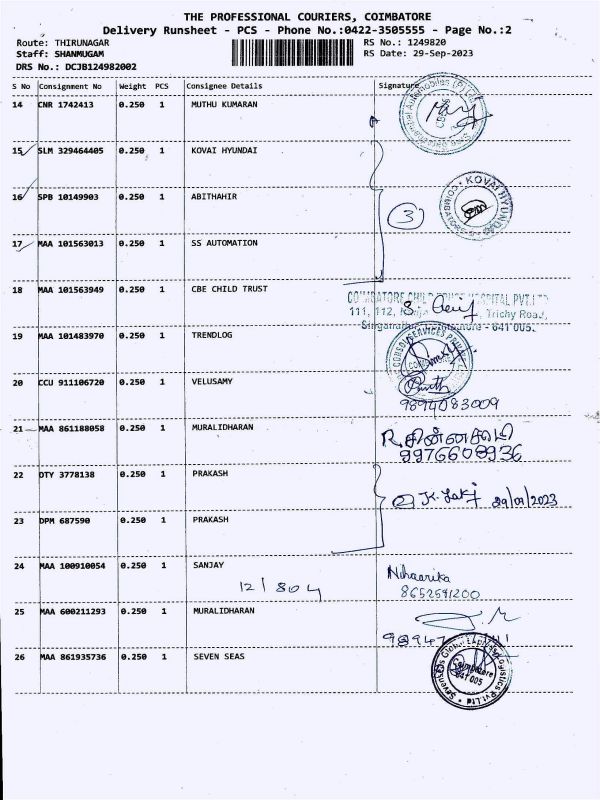 THE PROFESSIONAL COURIERS, COIMBATORE
Delivery Runsheet - PCS - Phone No.:0422-3505555 - Page No.:2
Route: THIRUNAGAR RS No.: 1249820
Staff: SHANMUGAM RS Date: 29-Sep-2023
DRS No.: DCJB124982002
S No Consignment No Weight PCS Consignee Details Signature
14 CNR 1742413 0.250 1 MUTHU KUMARAN
15 SLM 329464405 0.250 1 KOVAI HYUNDAI
KOVAI HYUNDAI
COIMBATORE
16 SPB 10149903 0.250 1 ABITHAHIR
3
17 MAA 101563013 0.250 1 SS AUTOMATION
18 MAA 101563949 0.250 1 CBE CHILD TRUST
COIMBATORE CHILD HOSPITAL PVT.LTD
111, 112, Trichy Road,
641 005.
19 MAA 101483970 0.250 1 TRENDLOG
20 CCU 911106720 0.250 1 VELUSAMY
9894083009
21 MAA 861188058 0.250 1 MURALIDHARAN
R.சின்னசாமி
9976608936
22 DTY 3778138 0.250 1 PRAKASH
29/09/2023
23 DPM 687590 0.250 1 PRAKASH
24 MAA 100910054 0.250 1 SANJAY
Nihaarika
12/804
8652591200
25 MAA 600211293 0.250 1 MURALIDHARAN
26 MAA 861935736 0.250 1 SEVEN SEAS
Sevenseas Global Express Logistics Pvt.Ltd
Coimbatore
641 005